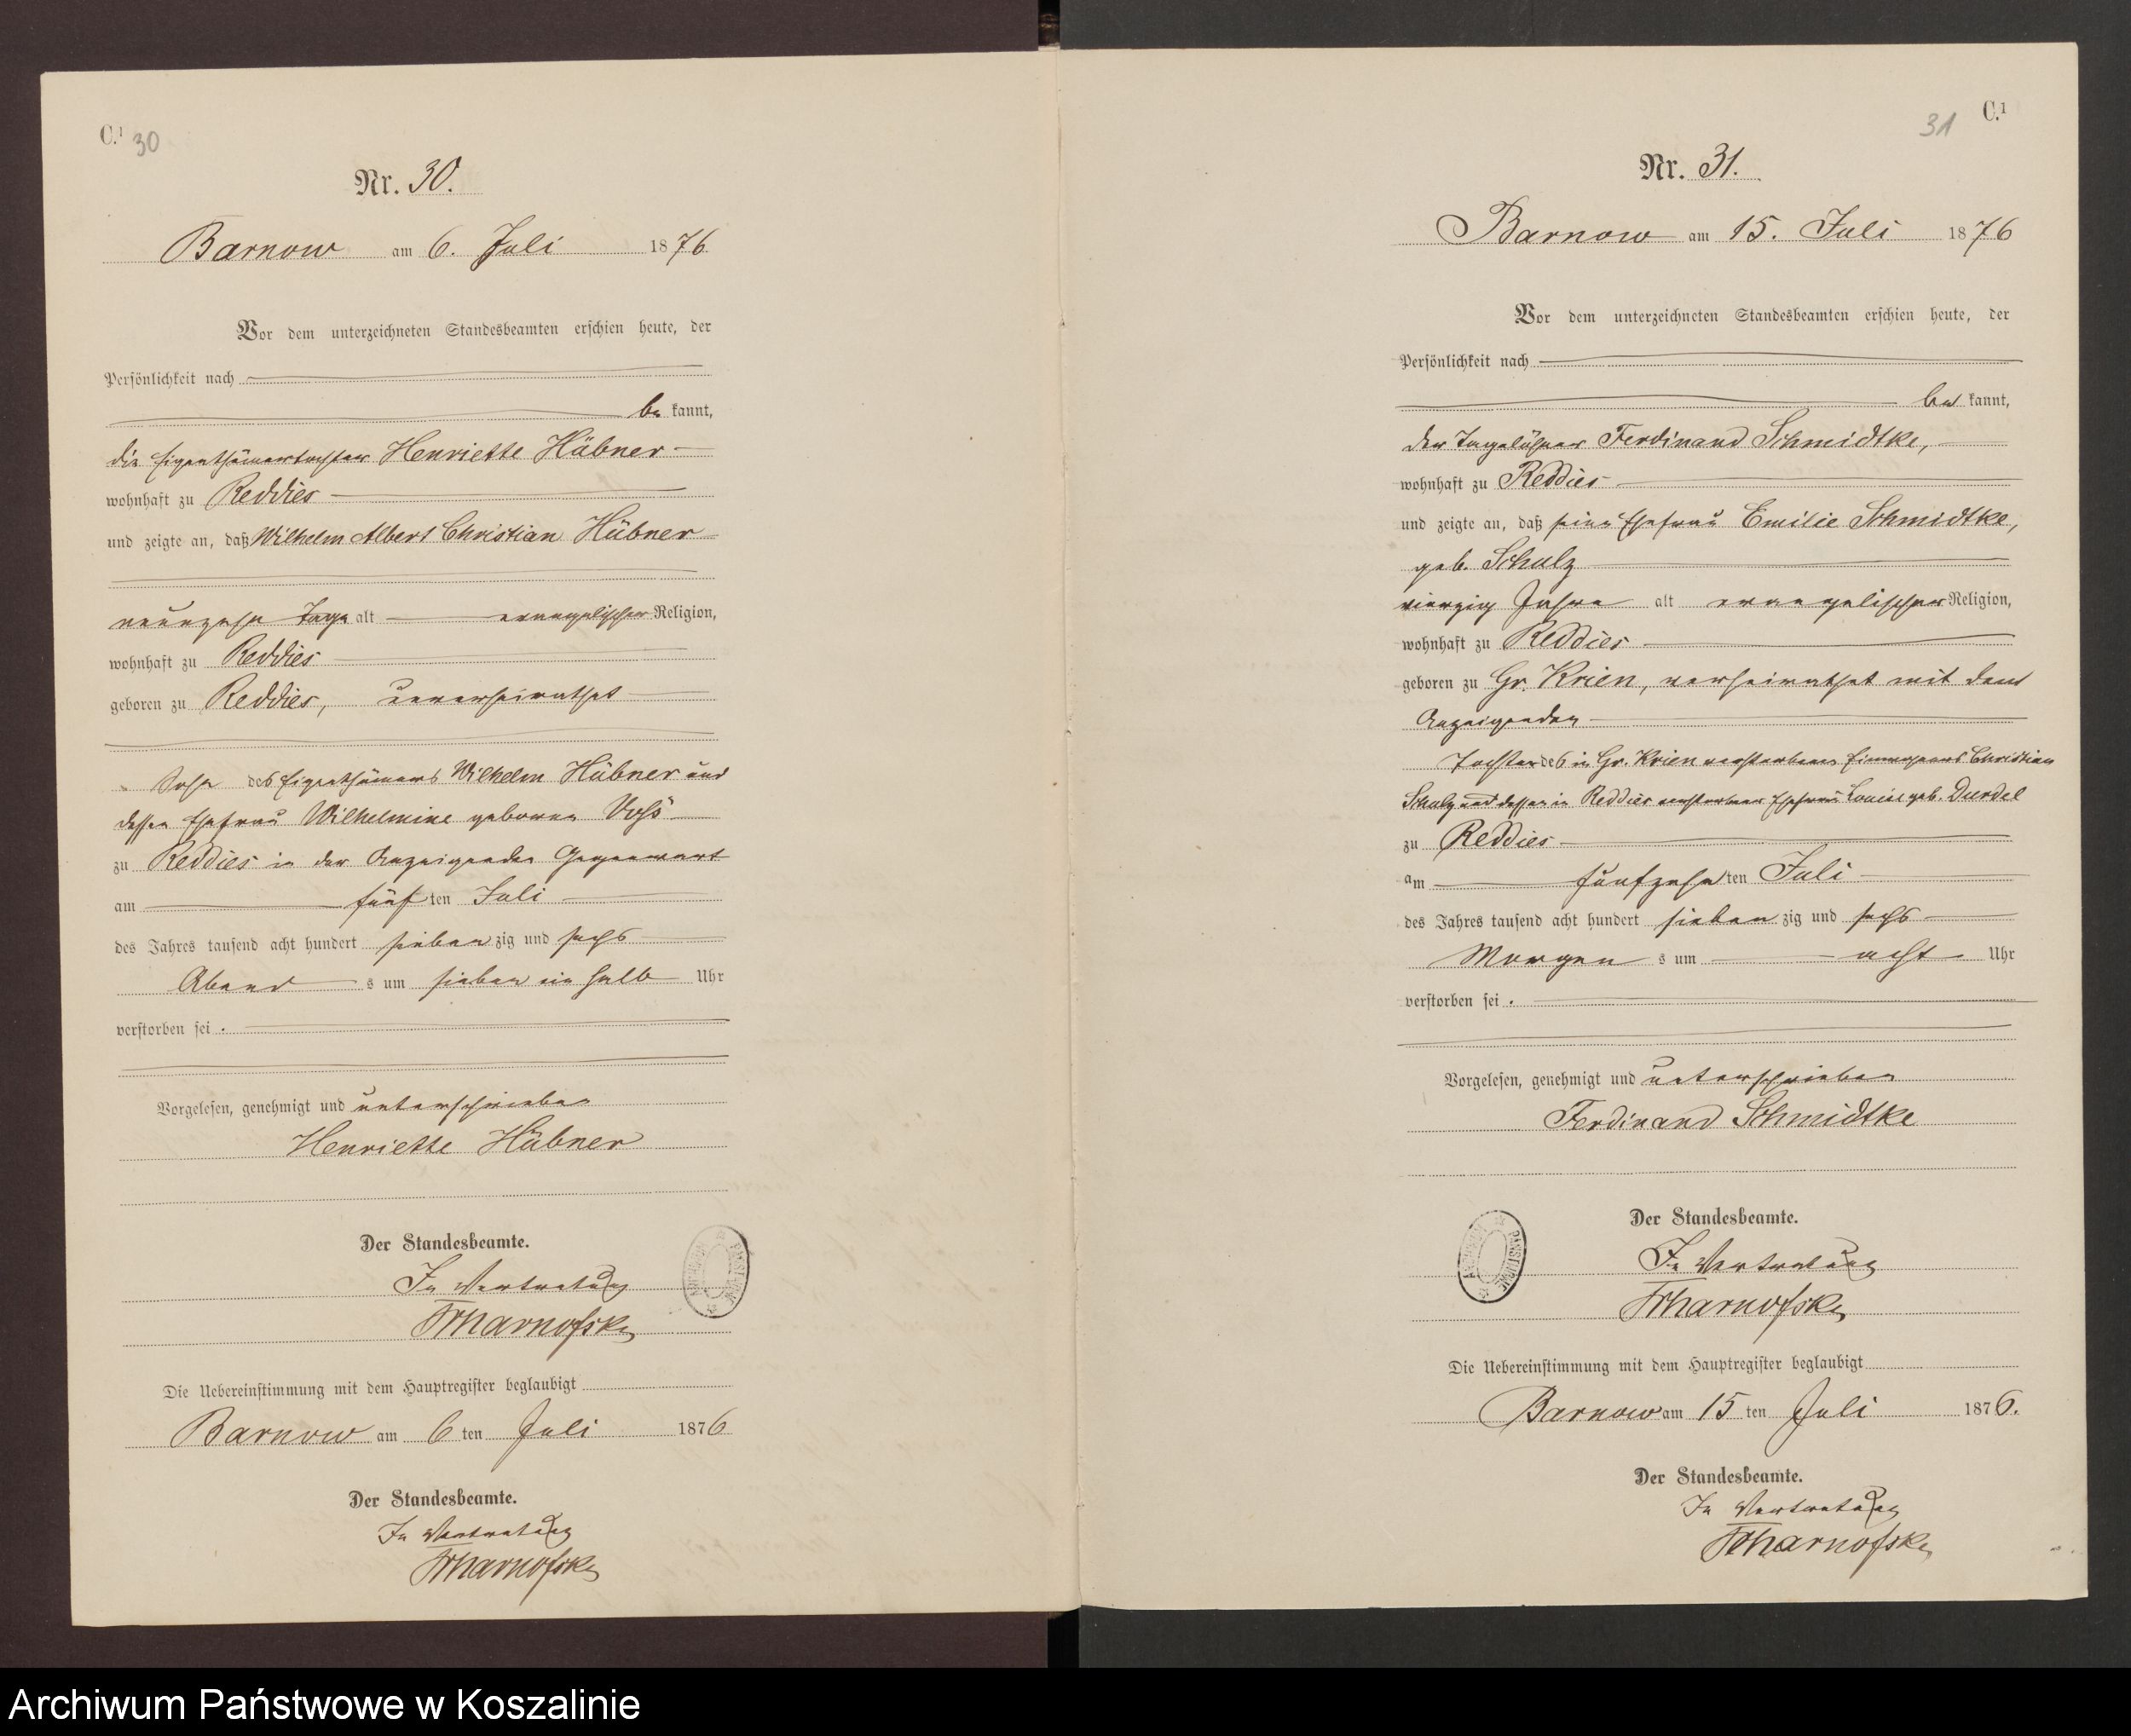 C.¹ 30
Nr. 30.
Barnow am 6. Juli 1876
Vor dem unterzeichneten Standesbeamten erschien heute, der
Persönlichkeit nach
be kannt,
die Eigenthümertochter Henriette Hübner
wohnhaft zu Reddies
und zeigte an, daß Wilhelm Albert Christian Hübner
neunzehn Tage alt evangelischer Religion,
wohnhaft zu Reddies
geboren zu Reddies, unverheirathet
Sohn des Eigenthümers Wilhelm Hübner und
dessen Ehefrau Wilhelmine geborene Voß
zu Reddies in der Anzeigenden Gegenwart
am fünf ten Juli
des Jahres tausend acht hundert sieben zig und sechs
Abend s um sieben ein halb Uhr
verstorben sei.
Vorgelesen, genehmigt und unterschrieben
Henriette Hübner
Der Standesbeamte.
In Vertretung
Die Uebereinstimmung mit dem Hauptregister beglaubigt
Barnow am 6 ten Juli 1876
Der Standesbeamte.
In Vertretung
31 C.¹
Nr. 31.
Barnow am 15. Juli 1876
Vor dem unterzeichneten Standesbeamten erschien heute, der
Persönlichkeit nach
be kannt,
der Tagelöhner Ferdinand Schmidtke,
wohnhaft zu Reddies
und zeigte an, daß seine Ehefrau Emilie Schmidtke,
geb. Schulz
vierzig Jahre alt evangelischer Religion,
wohnhaft zu Reddies
geboren zu Gr. Krien, verheirathet mit dem
Anzeigenden
Tochter des in Gr. Krien verstorbenen Einwohners Christian
Schulz und dessen in Reddies verstorbenen Ehefrau Louise geb. Durdel
zu Reddies
am fünfzehn ten Juli
des Jahres tausend acht hundert sieben zig und sechs
Morgen s um acht Uhr
verstorben sei.
Vorgelesen, genehmigt und unterschrieben
Ferdinand Schmidtke
Der Standesbeamte.
In Vertretung
Die Uebereinstimmung mit dem Hauptregister beglaubigt
Barnow am 15 ten Juli 1876.
Der Standesbeamte.
In Vertretung
Archiwum Państwowe w Koszalinie